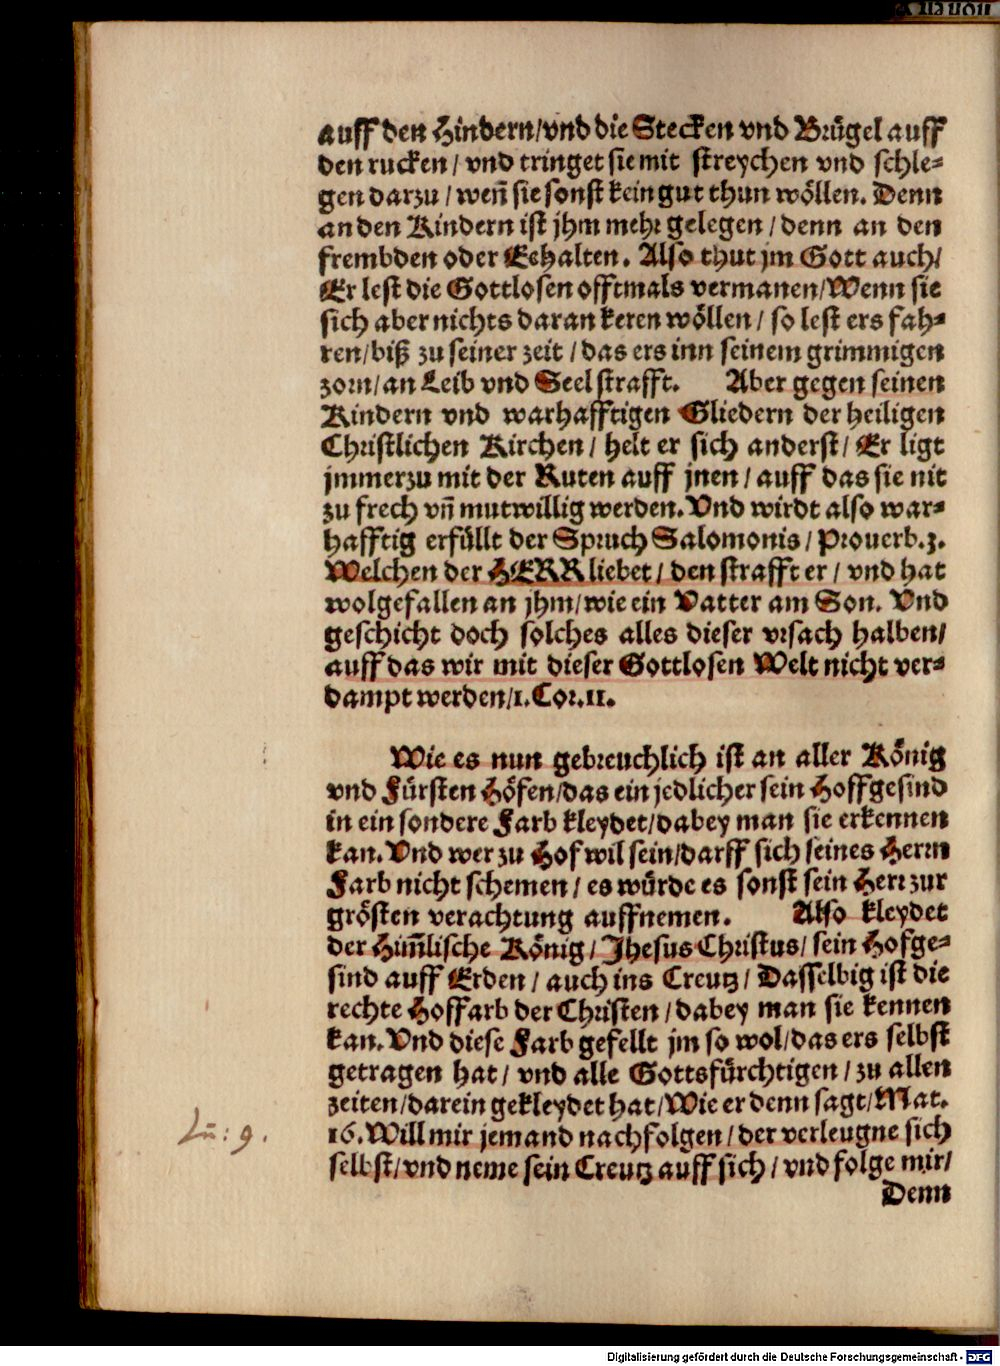 auff den Hindern/vnd die Stecken vnd Brügel auff
den rucken/ vnd tringet sie mit streychen vnd schle-
gen darzu/ weñ sie sonst kein gut thun wöllen. Denn
an den Kindern ist jhm mehr gelegen/ denn an den
frembden oder Eehalten. Also thut jm Gott auch/
Er lest die Gottlosen offtmals vermanen/Wenn sie
sich aber nichts daran keren wöllen/ so lest ers fah-
ren/biß zu seiner zeit/das ers inn seinem grimmigen
zorn/an Leib vnd Seel strafft. Aber gegen seinen
Kindern vnd warhafftigen Gliedern der heiligen
Christlichen Kirchen/ helt er sich anderst/ Er ligt
jmmerzu mit der Ruten auff jnen/ auff das sie nit
zu frech vñ mutwillig werden. Vnd wirdt also war-
hafftig erfüllt der Spruch Salomonis/ Prouerb.3.
Welchen der HERR liebet/ den strafft er/ vnd hat
wolgefallen an jhm/wie ein Vatter am Son. Vnd
geschicht doch solches alles dieser vrsach halben/
auff das wir mit dieser Gottlosen Welt nicht ver-
dampt werden/1.Cor.11.
Wie es nun gebreuchlich ist an aller König
vnd Fürsten Höfen/das ein jedlicher sein Hoffgesind
in ein sondere Farb kleydet/dabey man sie erkennen
kan. Vnd wer zu Hof wil sein/darff sich seines Herrn
Farb nicht schemen/ es würde es sonst sein Herr zur
grösten verachtung auffnemen. Also kleydet
der Him̃lische König/ Jhesus Christus/ sein Hofge-
sind auff Erden/ auch ins Creutz/ Dasselbig ist die
rechte Hoffarb der Christen/dabey man sie kennen
kan. Vnd diese Farb gefellt jm so wol/das ers selbst
getragen hat/ vnd alle Gottsfürchtigen/ zu allen
zeiten/darein gekleydet hat/Wie er denn sagt/Mat.
16. Will mir jemand nachfolgen/der verleugne sich
Lu: 9.
selbst/vnd neme sein Creutz auff sich/ vnd folge mir/
Denn
Digitalisierung gefördert durch die Deutsche Forschungsgemeinschaft - DFG